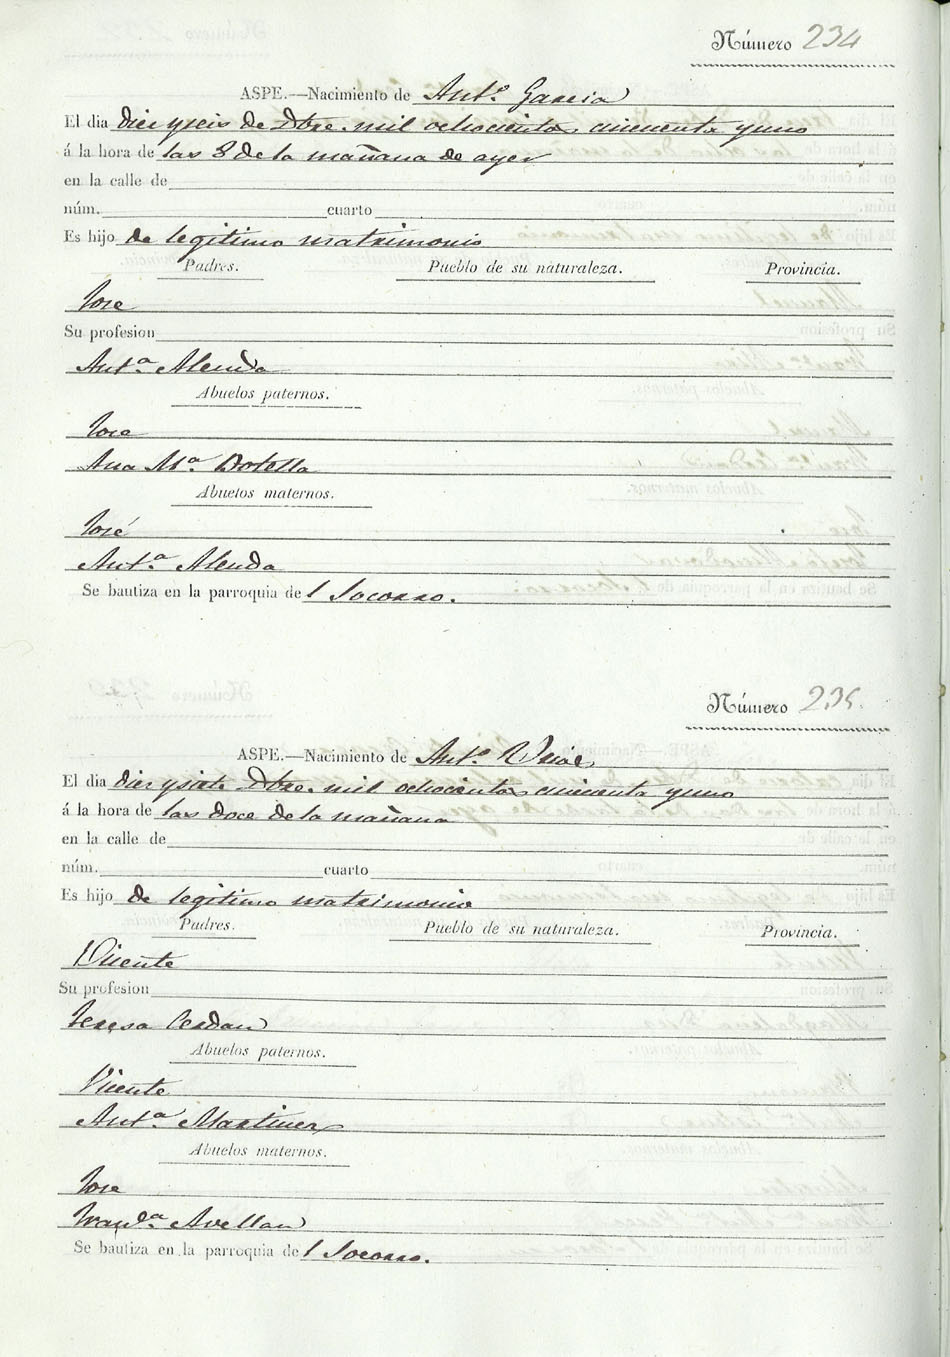 Número 234
ASPE.—Nacimiento de Ant.º Garcia
El dia diez y seis de Dbre. mil ochocientos cincuenta y uno
á la hora de las 8 de la mañana de ayer
en la calle de
núm. cuarto
Es hijo de legitimo matrimonio
Padres. Pueblo de su naturaleza. Provincia.
Jose
Su profesion
Ant.ª Alenda
Abuelos paternos.
Jose
Ana M.ª Botella
Abuelos maternos.
José
Ant.ª Alenda
Se bautiza en la parroquia del Socorro.
Número 235.
ASPE.—Nacimiento de Ant.º
El dia diez y siete Dbre. mil ochocientos cincuenta y uno
á la hora de las doce de la mañana
en la calle de
núm. cuarto
Es hijo de legitimo matrimonio
Padres. Pueblo de su naturaleza. Provincia.
Vicente
Su profesion
Teresa Cerdan
Abuelos paternos.
Vicente
Ant.ª Martinez
Abuelos maternos.
Jose
Fran.ca Avellan
Se bautiza en la parroquia del Socorro.